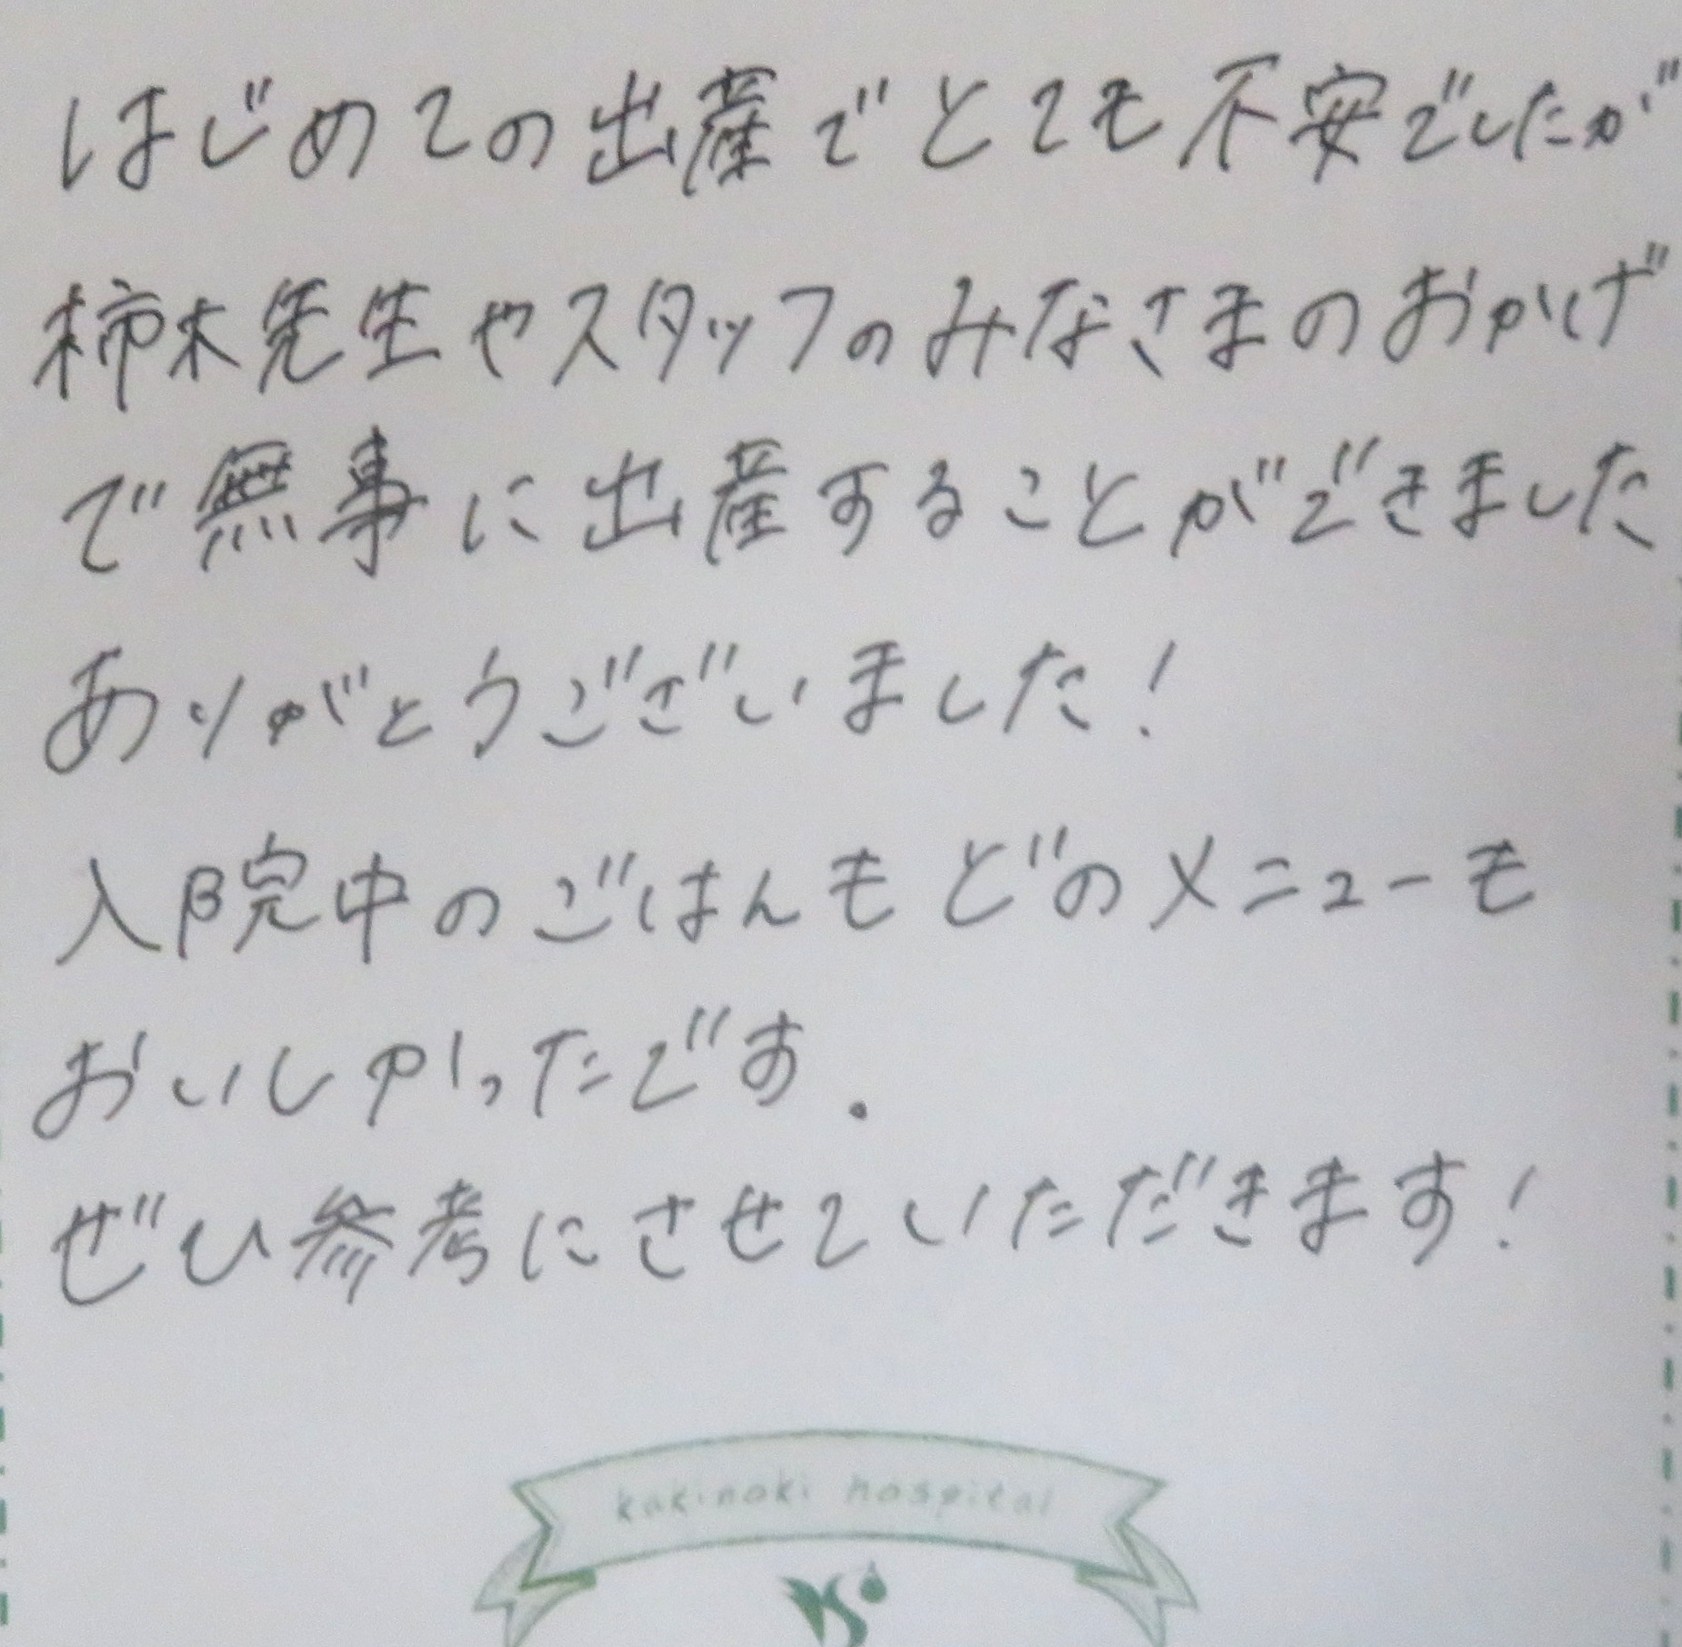 はじめての出産でとても不安でしたが
柿木先生やスタッフのみなさまのおかげ
で無事に出産することができました
ありがとうございました!
入院中のごはんもどのメニューも
おいしかったです.
ぜひ参考にさせていただきます!
kakinoki hospital